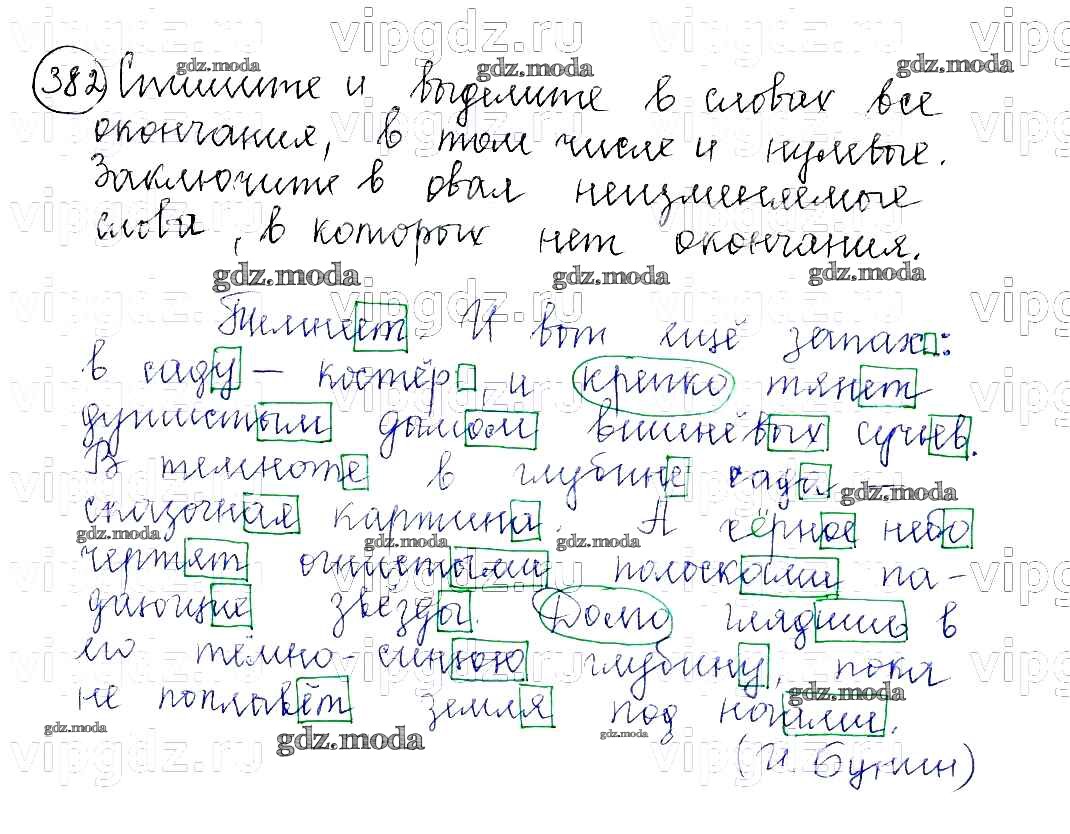 382 Спишите и выделите в словах все
окончания, в том числе и нулевые.
Заключите в овал неизменяемые
слова, в которых нет окончания.
Темнеет. И вот ещё запах:
в саду – костёр, и крепко тянет
душистым дымом вишнёвых сучьев.
В темноте в глубине сада –
сказочная картина. А чёрное небо
чертят огнистыми полосками па-
дающие звёзды. Долго глядишь в
его тёмно-синюю глубину, пока
не поплывёт земля под ногами.
(И. Бунин)